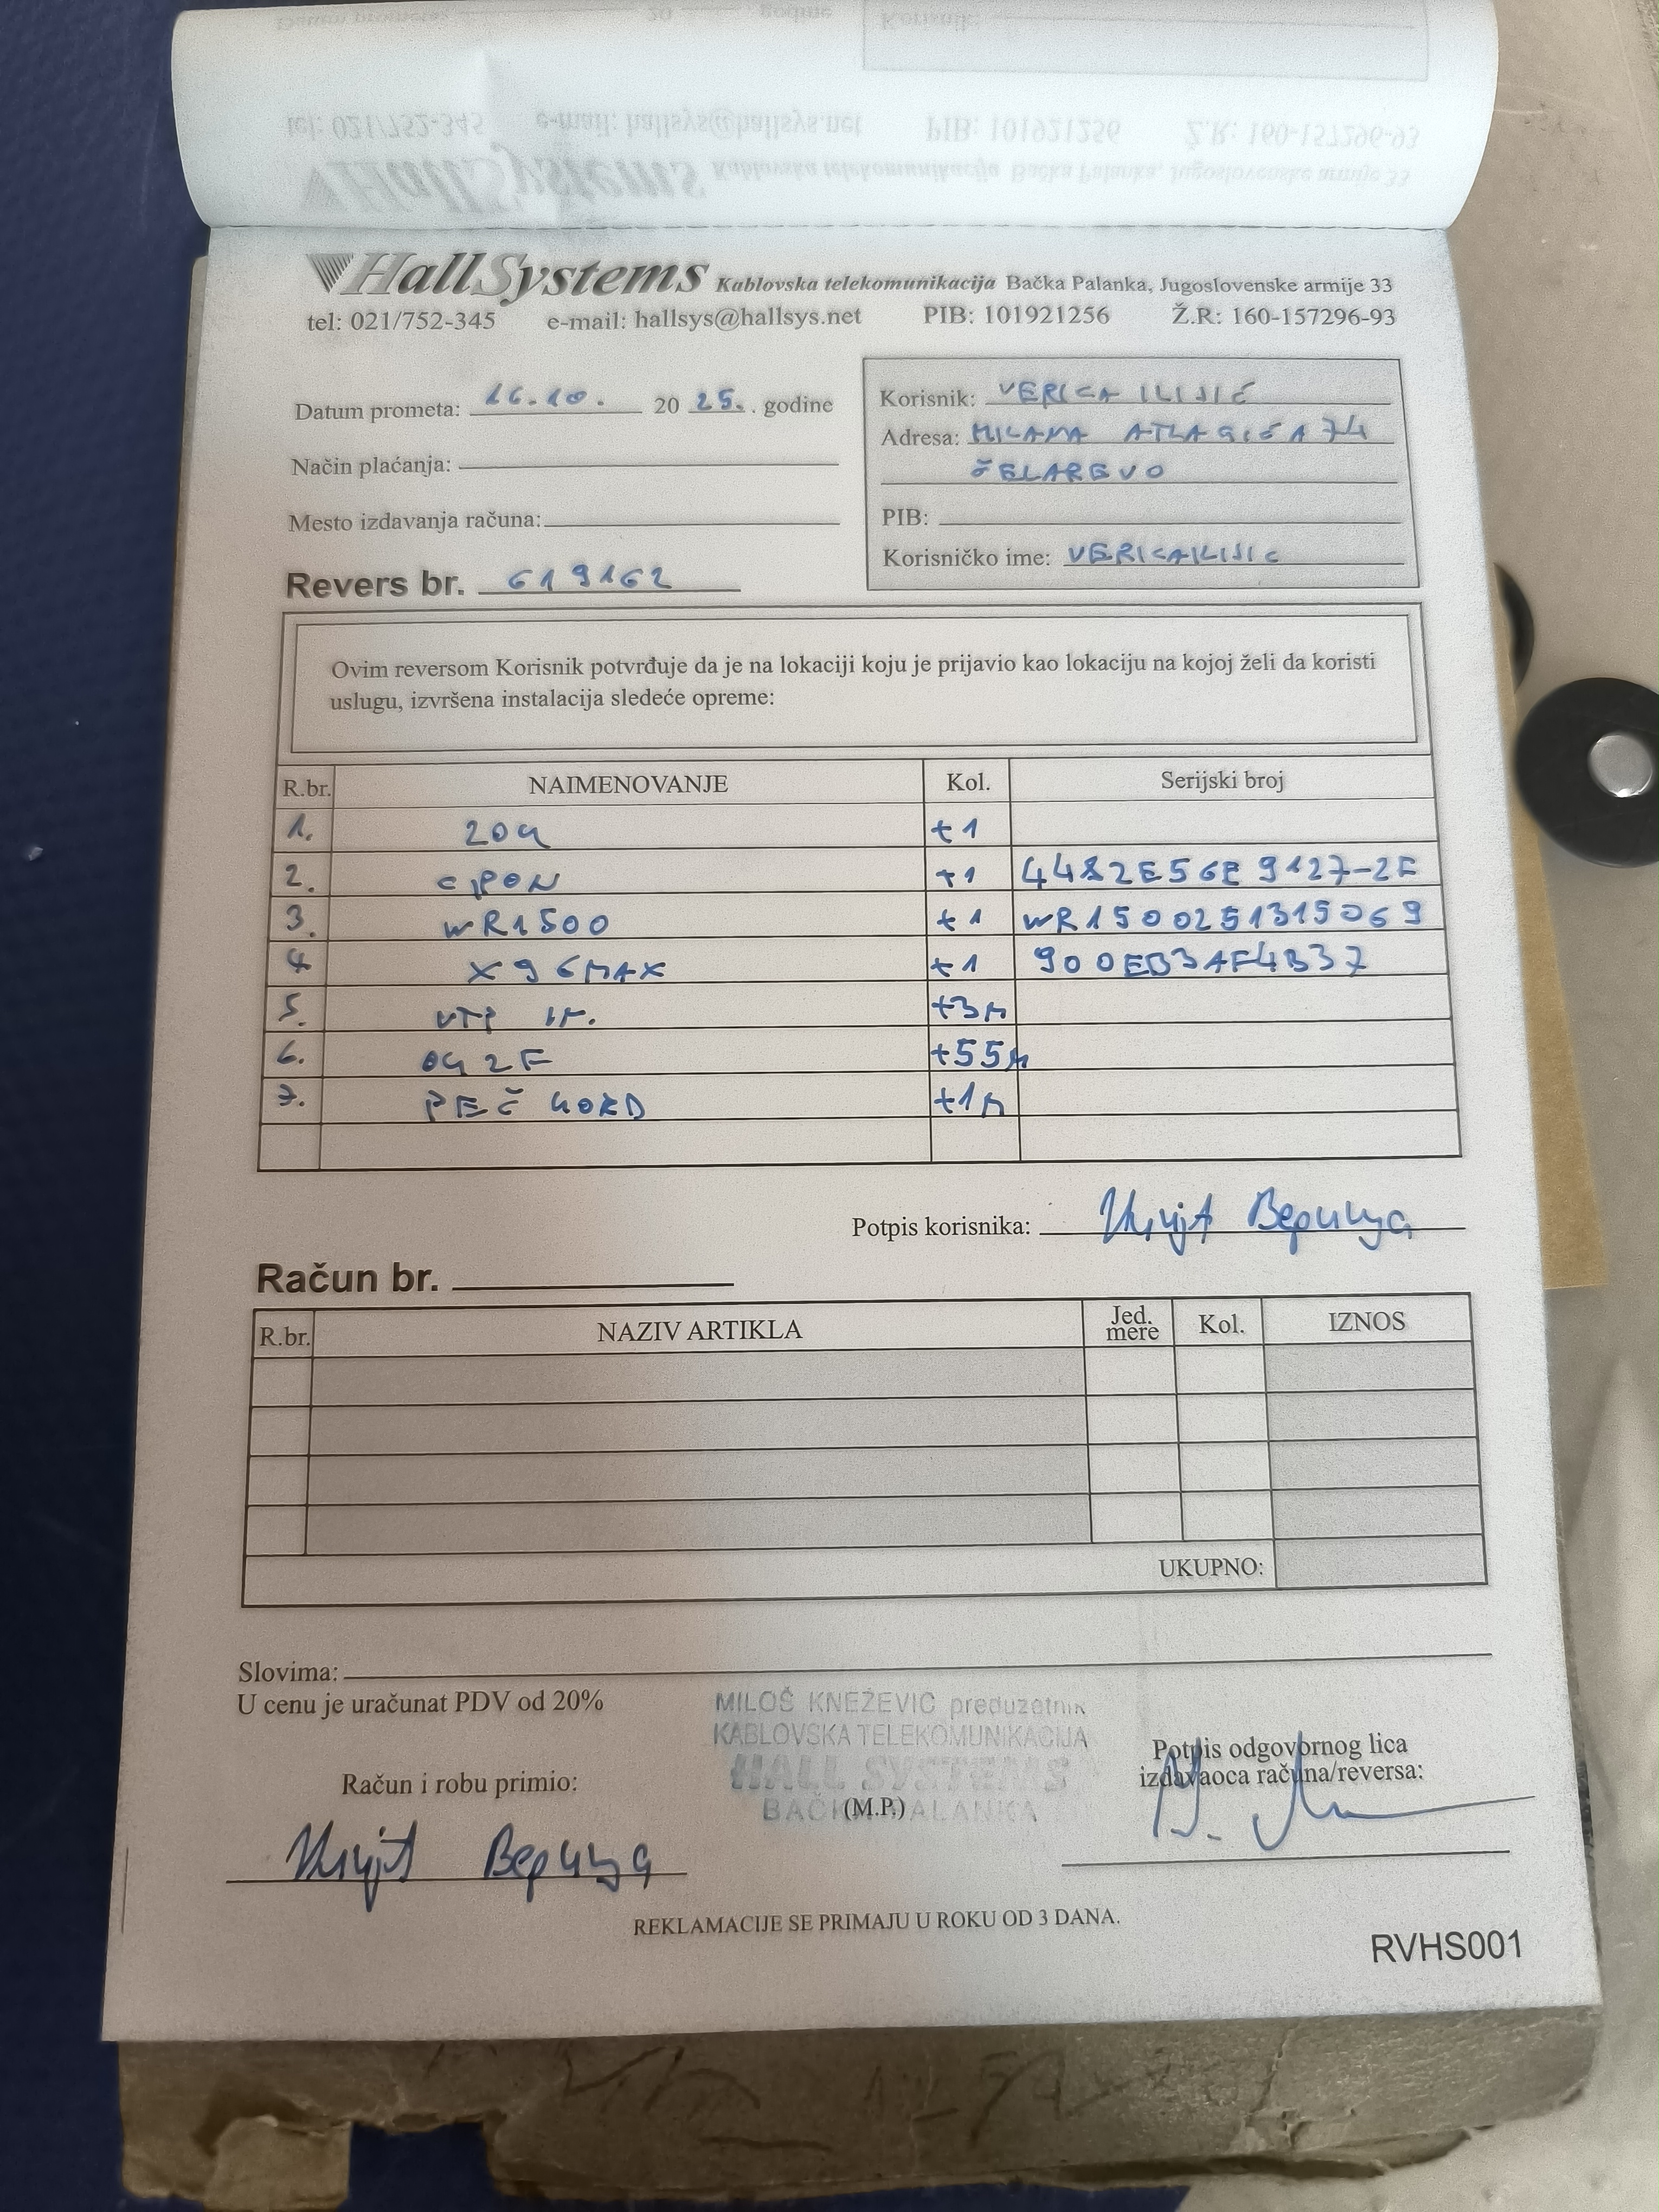 HallSystems Kablovska telekomunikacija Bačka Palanka, Jugoslovenske armije 33
tel: 021/752-345 e-mail: hallsys@hallsys.net PIB: 101921256 Ž.R: 160-157296-93
Datum prometa: 16.10. 20 25. . godine
Način plaćanja:
Mesto izdavanja računa:
Revers br. 619162
Korisnik: VERICA ILIJIĆ
Adresa: MILANA ATLAGIĆA 74
ČELAREVO
PIB:
Korisničko ime: VERICAILIJIC
Ovim reversom Korisnik potvrđuje da je na lokaciji koju je prijavio kao lokaciju na kojoj želi da koristi
uslugu, izvršena instalacija sledeće opreme:
R.br. NAIMENOVANJE Kol. Serijski broj
1. ZOK +1
2. GPON +1 4482E56E9127-2F
3. WR1500 +1 WR1500251315069
4 X96MAX +1 900EB3AF4B37
5. UTP +3M
6. OK 2F +55M
7. PEČ KORD +1M
Potpis korisnika: Илијић Верица
Račun br.
R.br. NAZIV ARTIKLA Jed. mere Kol. IZNOS
UKUPNO:
Slovima:
U cenu je uračunat PDV od 20%
MILOŠ KNEŽEVIĆ preduzetnik
KABLOVSKA TELEKOMUNIKACIJA
HALL SYSTEMS
BAČKA PALANKA
(M.P.)
Račun i robu primio:
Илијић Верица
Potpis odgovornog lica
izdavaoca računa/reversa:
REKLAMACIJE SE PRIMAJU U ROKU OD 3 DANA.
RVHS001